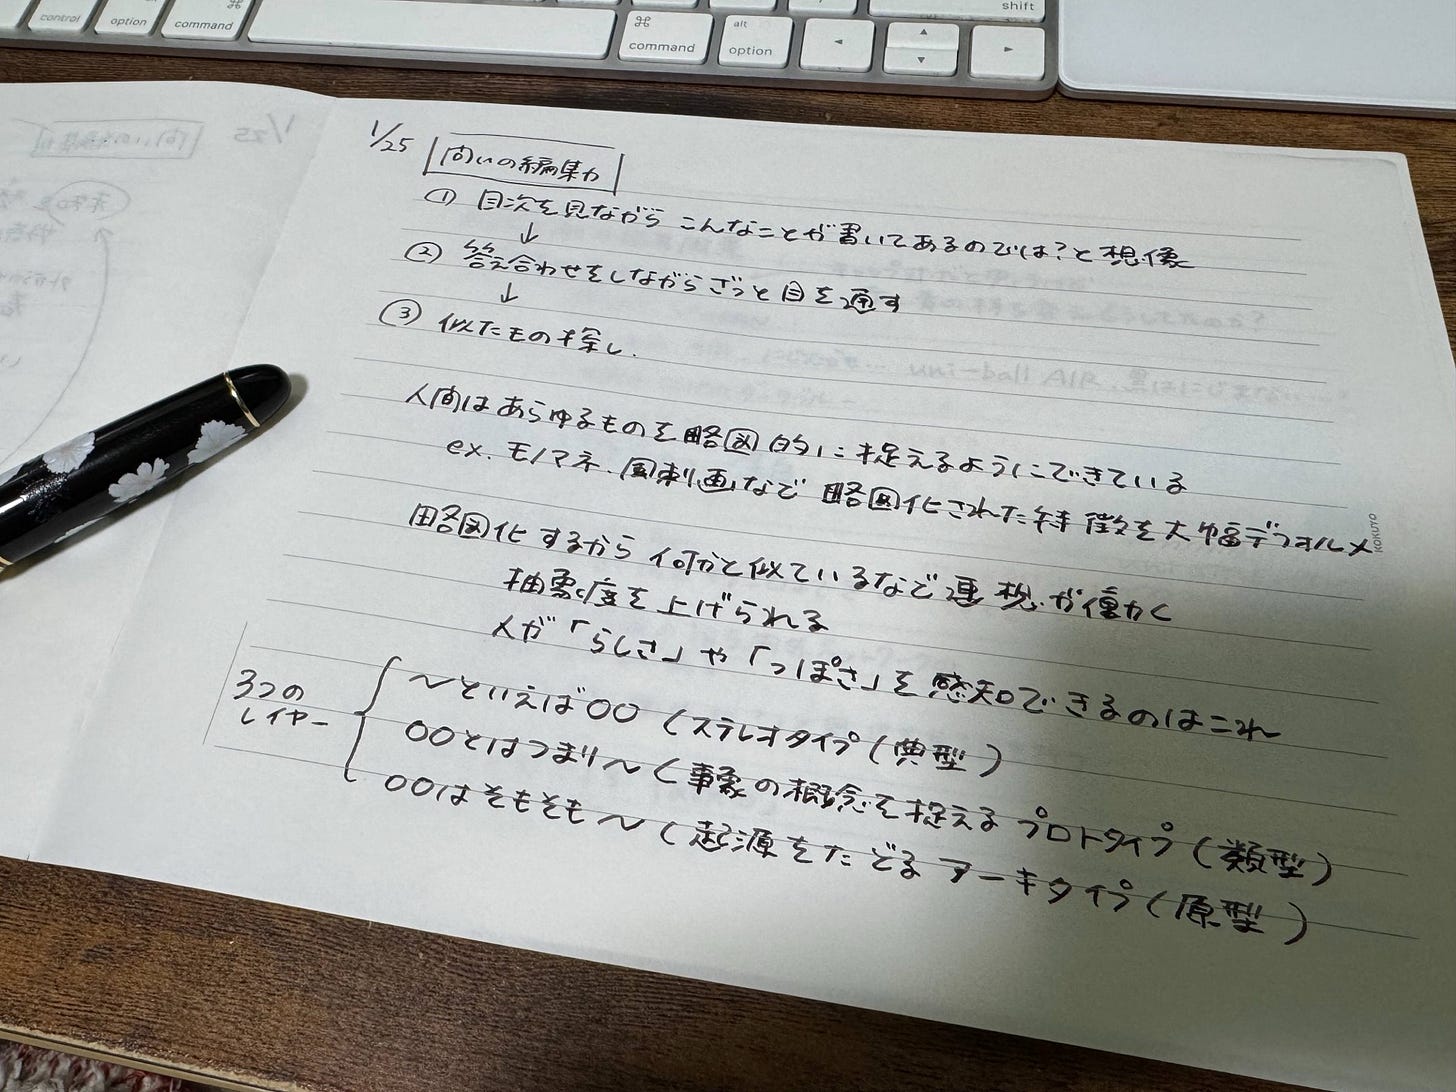 control
option
⌘
command
⌘
command
alt
option
◄
▲
▼
►
shift
1/25 問いの編集力
① 目次を見ながら こんなことが書いてあるのでは?と想像
↓
② 答え合わせをしながらざっと目を通す
↓
③ 似たもの探し.
人間はあらゆるものを略図的に捉えるようにできている
ex. モノマネ. 風刺画などで 略図化された特徴を大幅デフォルメ
略図化するから 何かと似ているなど連想が働く
抽象度を上げられる
人が「らしさ」や「っぽさ」を感知できるのはこれ
3つの
レイヤー
〜といえば〇〇 (ステレオタイプ (典型)
〇〇とはつまり〜 (事象の概念を捉える プロトタイプ (類型)
〇〇はそもそも〜 (起源をたどる アーキタイプ (原型)
KOKUYO
1/25 問いの編集力
uni-ball AIR